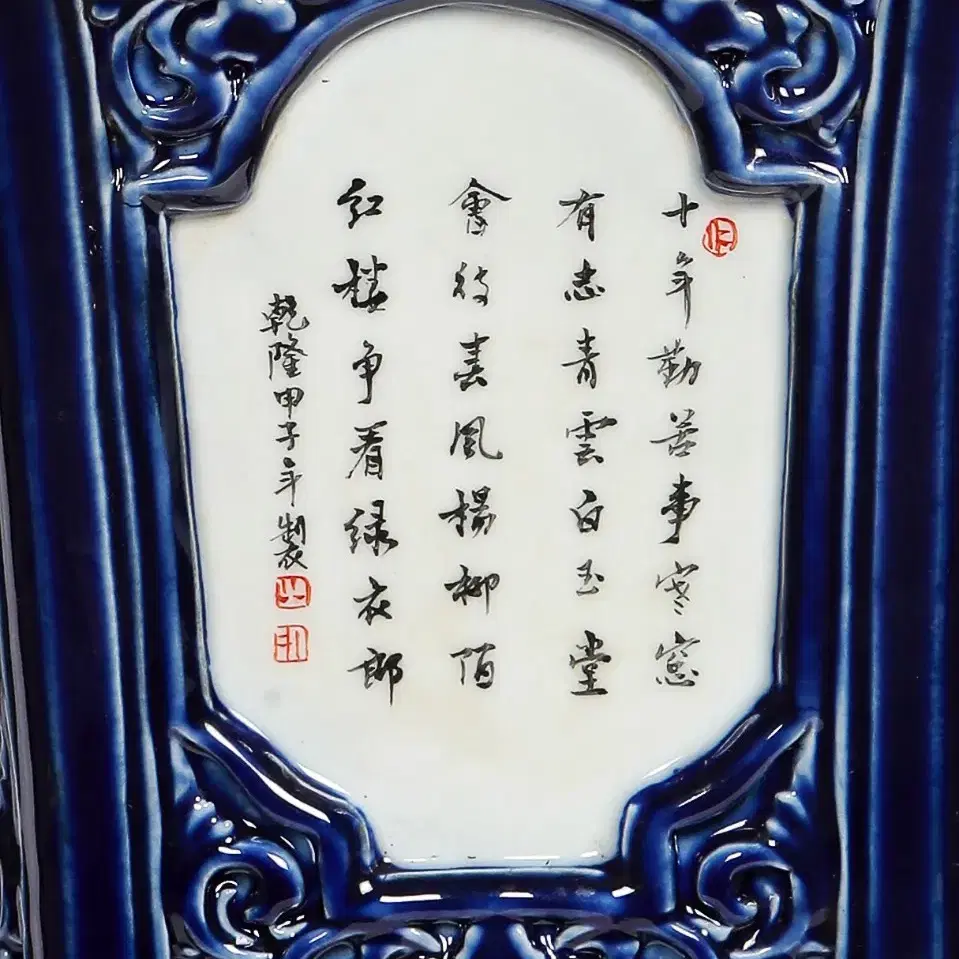 十年勤苦事寒窓
有志青雲白玉堂
會待春風楊柳陌
紅樓争看绿衣郎
乾隆甲子年製